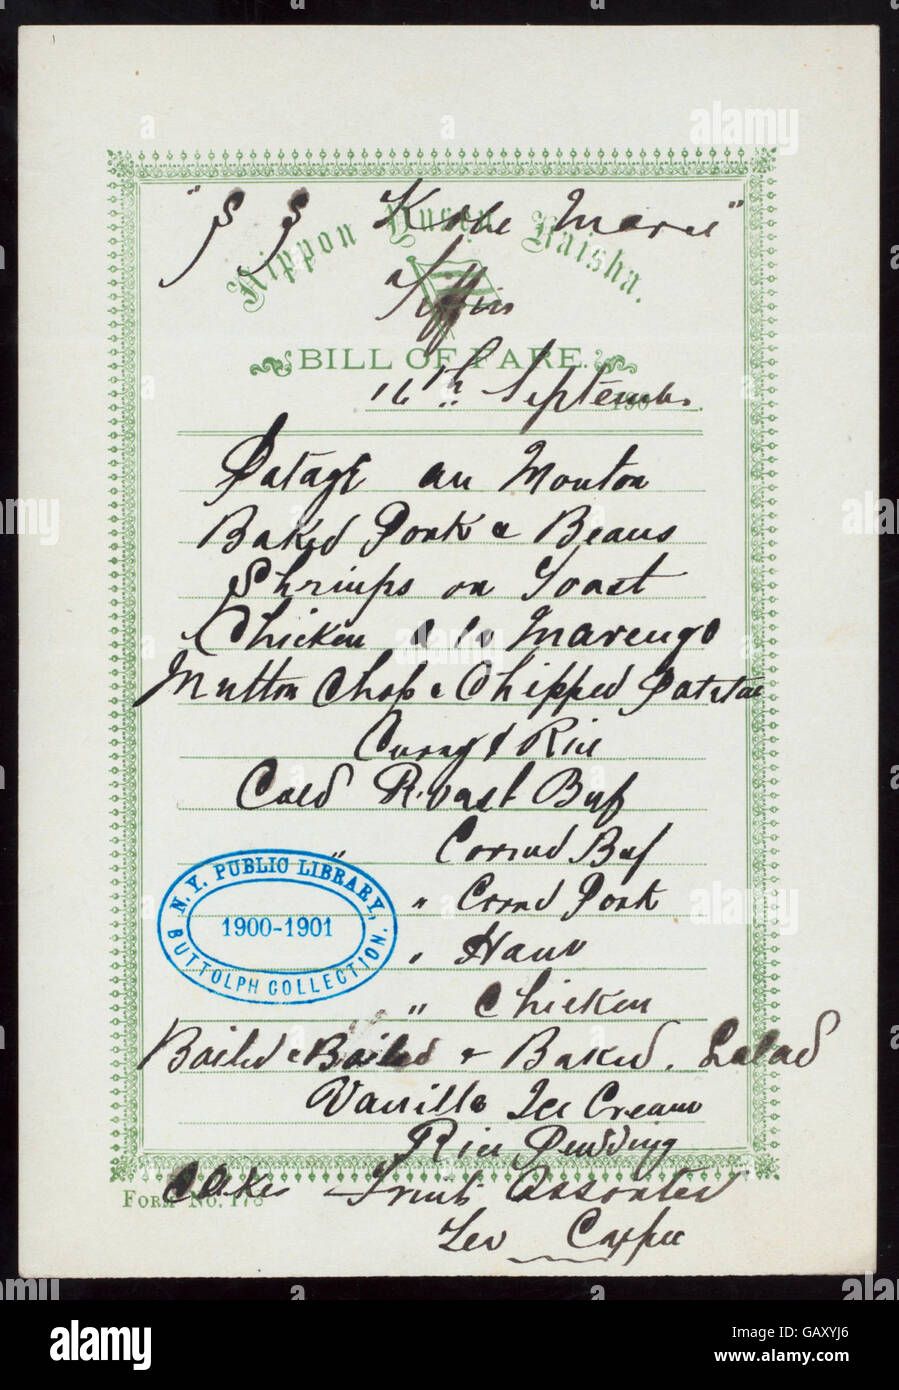 "S S Kobe Maru"
Nippon Yusen Kaisha.
Tiffin
BILL OF FARE.
16th September 190
Potage au Mouton
Baked Pork & Beans
Shrimps on Toast
Chicken a la Marengo
Mutton Chop & Chipped Potatoe
Curry & Rice
Cold Roast Beef
" Corned Beef
" Corned Pork
" Ham
" Chicken
Boiled & Boiled & Baked. Salad
Vanilla Ice Cream
Rice Pudding
Cakes Fruits Assorted
Tea Coffee
FORM NO. 178
N.Y. PUBLIC LIBRARY,
1900-1901
BUTTOLPH COLLECTION.
alamy
alamy stock photo
GAXYJ6
www.alamy.com